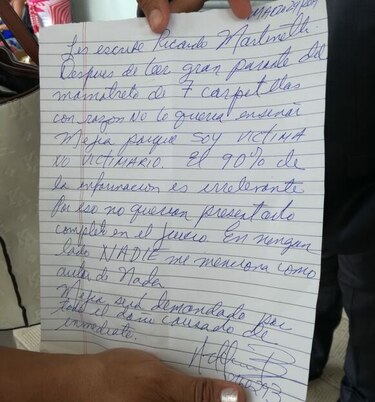 Les escribe Ricardo Martinelli
Despues de leer gran parte del
mamotreto de 7 carpetillas
con razon No lo queria enseñar
Mejia porque SOY VICTIMA
NO VICTIMARIO El 90% de
la informacion es irrelevante
Por eso no querian presentarlo
completo en el juicio En ningun
lado NADIE me menciona como
autor de Nada
Mejia será demandado por
todo el daño causado de
inmediato.